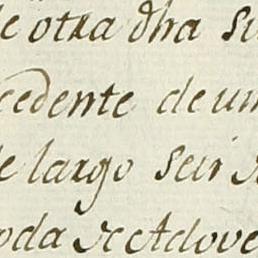 e otra dha su
cedente de un
e largo seis
oda de Adove